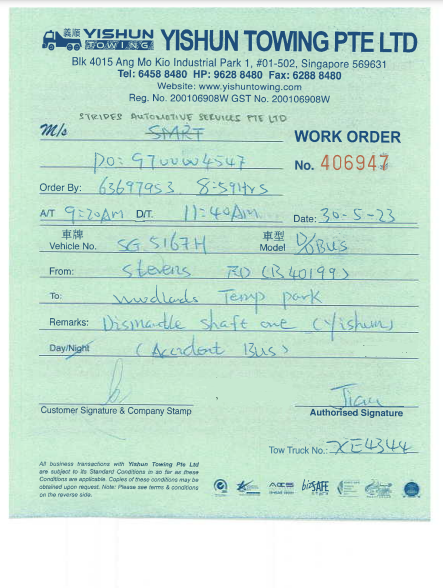 義順 YISHUN TOWING YISHUN TOWING PTE LTD
Blk 4015 Ang Mo Kio Industrial Park 1, #01-502, Singapore 569631
Tel: 6458 8480 HP: 9628 8480 Fax: 6288 8480
Website: www.yishuntowing.com
Reg. No. 200106908W GST No. 200106908W
STRIDES AUTOMOTIVE SERVICES PTE LTD
M/s SMRT
WORK ORDER
Do: G7UUW4547
No. 406947
Order By: 63697953 8:59Hrs
A/T 9:20AM D/T. 11:40AM Date: 30-5-23
車牌 車型
Vehicle No. SG 5167H Model D/D BUS
From: Stevens RD (B40199)
To: Temp park
Remarks: Dismantle shaft one (Yishun)
Day/Night (Accident Bus)
Customer Signature & Company Stamp
Authorised Signature
Tow Truck No.: XE4344
All business transactions with Yishun Towing Pte Ltd
are subject to its Standard Conditions in so far as these
Conditions are applicable. Copies of these conditions may be
obtained upon request. Note: Please see terms & conditions
on the reverse side.
bizSAFE